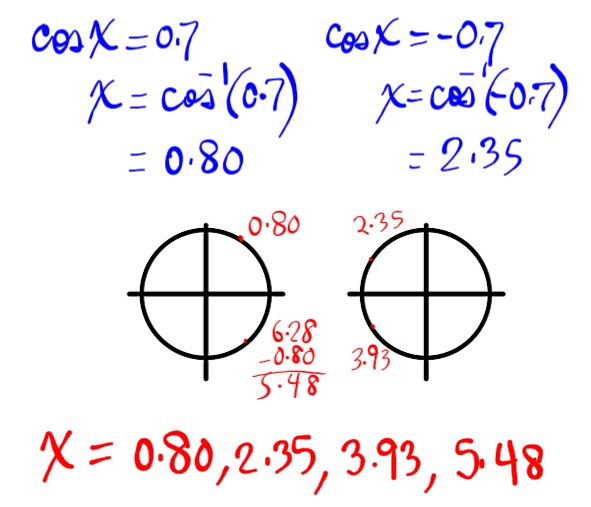 cos x = 0.7
x = cos⁻¹(0.7)
= 0.80
cos x = -0.7
x = cos⁻¹(-0.7)
= 2.35
0.80
6.28
-0.80
5.48
2.35
3.93
x = 0.80, 2.35, 3.93, 5.48